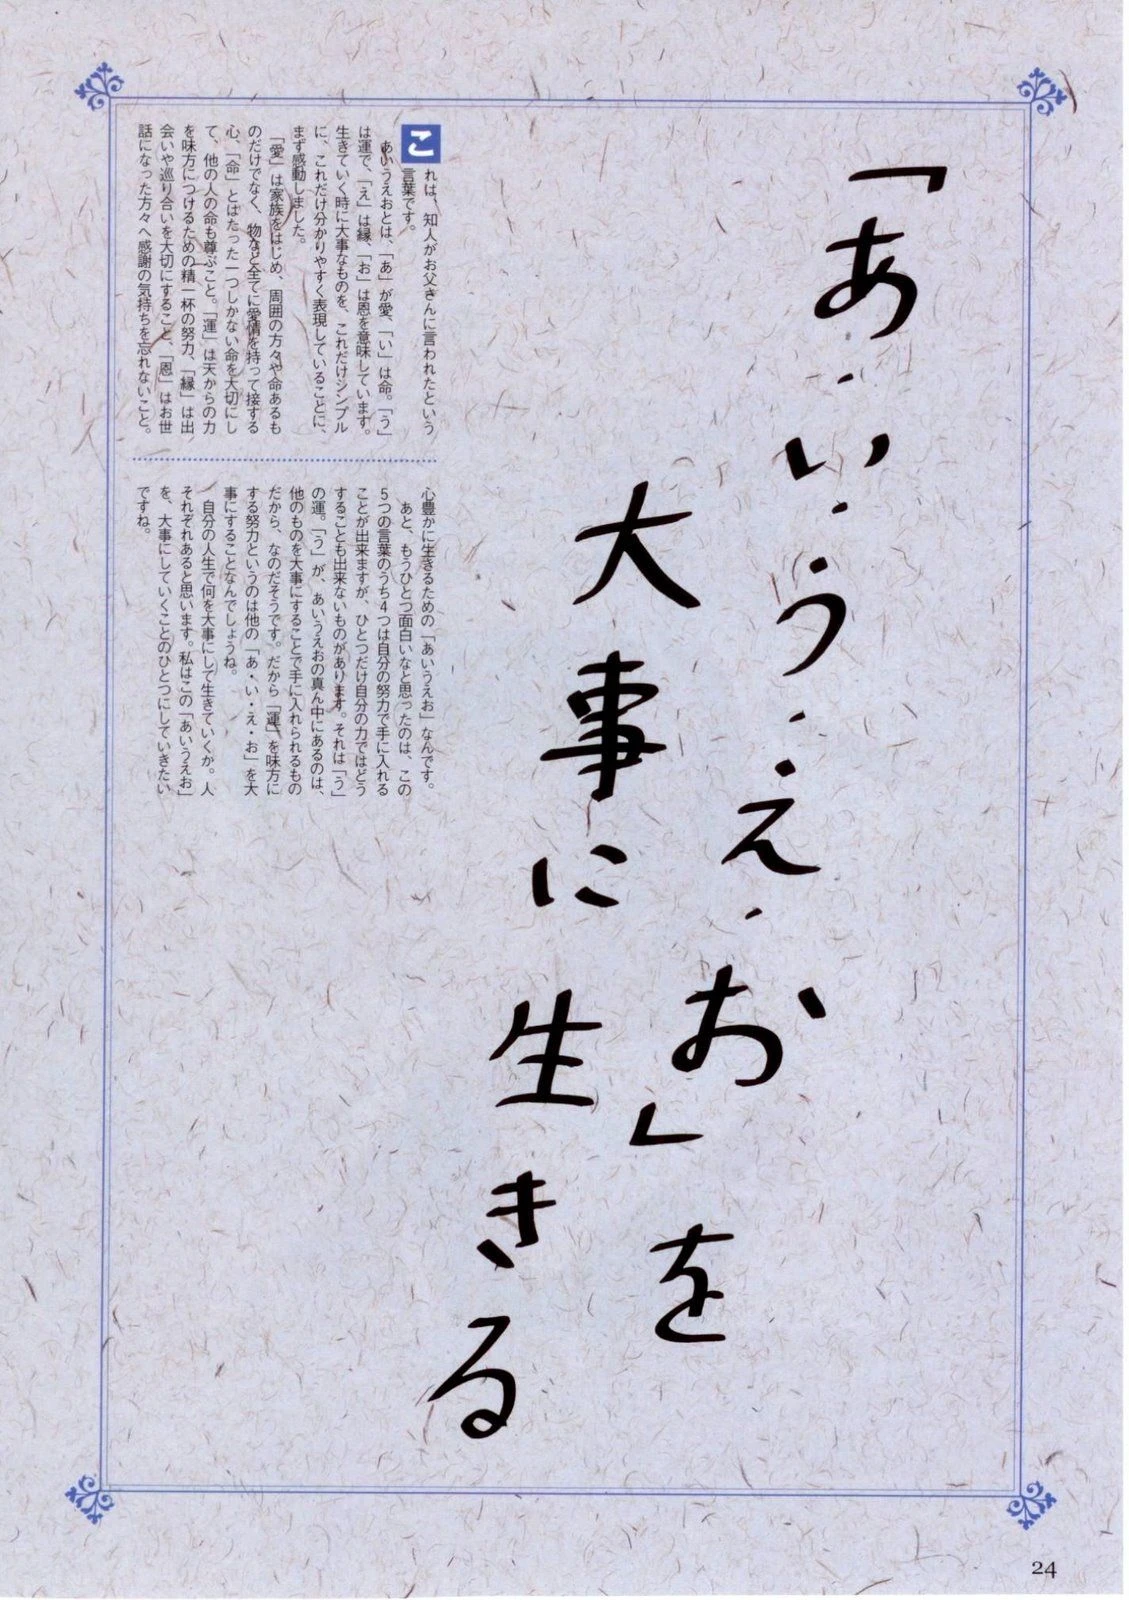 「あ・い・う・え・お」を
大事に生きる
これは、知人がお父さんに言われたという
言葉です。
あいうえおとは、「あ」が愛、「い」は命。「う」
は運で、「え」は縁、「お」は恩を意味しています。
生きていく時に大事なものを、これだけシンプル
に、これだけ分かりやすく表現していることに、
まず感動しました。
「愛」は家族をはじめ、周囲の方々や命あるも
のだけでなく、物など全てに愛情を持って接する
心、「命」とはたった一つしかない命を大切にし
て、他の人の命も尊ぶこと。「運」は天からの力
を味方につけるための精一杯の努力、「縁」は出
会いや巡り合いを大切にすること、「恩」はお世
話になった方々へ感謝の気持ちを忘れないこと。
心豊かに生きるための「あいうえお」なんです。
あと、もうひとつ面白いなと思ったのは、この
5つの言葉のうち4つは自分の努力で手に入れる
ことが出来ますが、ひとつだけ自分の力ではどう
することも出来ないものがあります。それは「う」
の運。「う」が、あいうえおの真ん中にあるのは、
他のものを大事にすることで手に入れられるもの
だから、なのだそうです。だから「運」を味方に
する努力というのは他の「あ・い・え・お」を大
事にすることなんでしょうね。
自分の人生で何を大事にして生きていくか。人
それぞれあると思います。私はこの「あいうえお」
を、大事にしていくことのひとつにしていきたい
ですね。
24